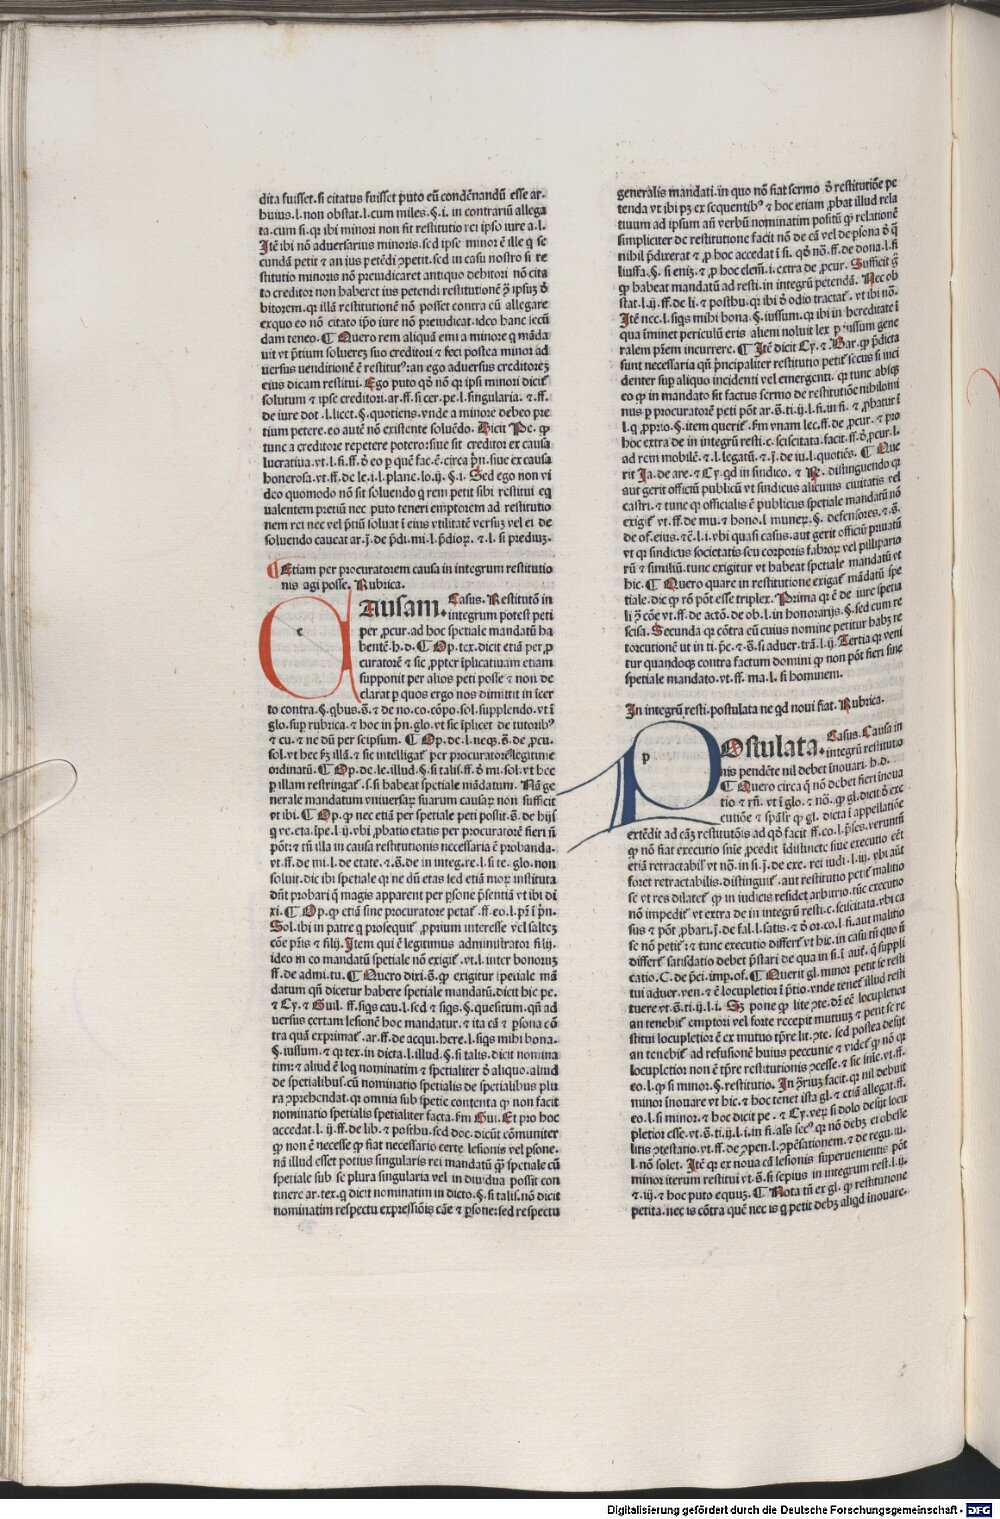 dita fuisset. si citatus fuisset puto eū condēnandū esse ar.
huius. l. non obstat. l. cum miles. §. i. in contrariū allega
ta. cum si. qr ibi minori non fit restitutio rei ipso iure a. l.
Itē ibi nō adversarius minoris. sed ipse minor ē ille q̄ se
cundā petit ⁊ an ius petēdi ꝯperit. sed in casu nostro si re
stitutio minoris nō preiudicaret antiquo debitori nō cita
to creditor non haberet ius petendi restitutionē ꝯ̄ ipsuꝫ ð
bitorem. qr illā restitutionē nō posset contra eū allegare
exquo eo nō citato ip̄o iure nō preiudicat. ideo hanc lecū
dam teneo. ¶ Quero rem aliquā emi a minore q̄ māda
uit vt p̄tium soluereꝫ suo creditori ⁊ feci postea minor ad
versus uenditionē ē restitutꝰ. an ego adversus creditoreꝫ
eius dicam restitui. Ego puto qð nō qr ipsi minori dicit᷑
solutum ⁊ ipse creditori. ar. ff. si cer. pe. l. singularia. ⁊. ff.
de iure dot. l. licet. §. quotiens. vnde a minore debeo pre
tium petere. eo autē nō existente soluēdo. Dicit Pe. ꝙ
tunc a creditore repetere potero: siue sit creditor ex causa
lucratiua. vt. l. fi. ff. ð eo p quē fac. ē. circa p̄n. siue ex causa
honerosa. vt. ff. de le. i. l. plane. lo. ij. §. i. Sed ego non vi
deo quomodo nō sit soluendo q̄ rem petit sibi restitui eq
ualentem pretiū nec puto teneri emptorem ad restitutio
nem rei nec vel p̄tiū soluat ī eius vtilitatē versuꝫ vel ei de
soluendo caueat ar. j. de p̄di. mi. l. p̄dioꝝ. ⁊. l. si prediuꝫ.
¶ Etiam per procuratorem causa in integrum restitutio
nis agi posse. Rubrica.
Causam. Casus. Restitutō in
integrum potest peti
per ꝓcur. ad hoc spetiale mandatū ha
bentē. h. d. ¶ Op. tex. dicit etiā per ꝓ
curatorē ⁊ sic ꝓpter īplicatiuam etiam
supponit per alios peti posse ⁊ non de
clarat p quos ergo nos dimittit in īcer
to contra. §. qbus. s̄. ⁊ de no. co. cōpo. sol. supplendo. vt ī
glo. sup rubrica. ⁊ hoc in p̄n. glo. vt sic īplicet de tutoribꝰ
⁊ cu. ⁊ ne dū per seipsum. ¶ Op. de. l. neqꝫ. s̄. de ꝓcu.
sol. vt hec ẜm illā. ⁊ sic intelligat᷑ per procuratorē legitime
ordinatū. ¶ Op. de. le. illud. §. si talis. ff. ð mi. sol. vt hec
p illam restringat᷑. s. si habeat spetiale mādatum. Nā ge
nerale mandatum vniuersaꝝ suarum causaꝝ non sufficit
vt ibi. ¶ Op. ꝙ nec etiā per spetiale peti possit. s̄. de hijs
q̄ ve. eta. īpe. l. ij. vbi ꝓbatio etatis per procuratorē fieri n̄
pōt: ⁊ tn̄ illa in causa restitutionis necessaria ē probanda.
vt. ff. de mi. l. de etate. ⁊. s̄. de in integ. re. l. si te. glo. non
soluit. dic ibi spetiale qr ne dū etas sed etiā moꝝ instituta
dn̄t probari q̄ magis apparent per ꝑsone p̄sentiā vt ibi di
xi. ¶ Op. ꝙ etiā sine procuratore petat᷑. ff. eo. l. pr̄ ī p̄n.
Sol. ibi in patre q̄ prosequit᷑. ꝓprium interesse vel salteꝫ
cōe pr̄is ⁊ filij. Item qui ē legitimus administrator filij.
ideo in eo mandatū spetiale nō exigit᷑. vt. l. inter honoruꝫ
ff. de admi. tu. ¶ Quero dixi. s̄. ꝙ exigitur spetiale mā
datum qn̄ dicetur habere spetiale mandatū. dicit hic pe.
⁊ Cy. ⁊ Guil. ff. siqs cau. l. sed ⁊ siqs. §. quesitum. qn̄ ad
uersus certam lesionē hoc mandatur. ⁊ ita cā ⁊ ꝑsona cō
tra quā exprimat᷑. ar. ff. de acqui. here. l. siqs mihi bona.
§. iussum. ⁊ qr tex. in dicta. l. illud. §. si talis. dicit nomina
tim: ⁊ aliud ē loq̄ nominatim ⁊ spetialiter ð aliquo. aliud
de spetialibus. cū nominatio spetialis de spetialibus plu
ra ꝯprehendat. qr omnia sub spetie contenta ꝙ non facit
nominatio spetialis spetialiter facta. ẜm Gui. Et pro hoc
accedat. l. ij. ff. de lib. ⁊ posthu. sed doc. dicūt cōmuniter
ꝙ non ē necesse ꝙ fiat necessario certe lesionis vel ꝑsone.
nā illud esset potius singularis rei mandatū ꝙ̄ spetiale cū
spetiale sub se plura singularia vel in diuidua possit con
tinere ar. tex. q̄ dicit nominatim in dicto. §. si talis. nō dicit
nominatim respectu expressiōis cāe ⁊ ꝑsone: sed respectu
generalis mandati. in quo nō fiat sermo ð restitutiōe pe
tenda vt ibi pꝫ ex sequentibꝰ ⁊ hoc etiam ꝓbat illud rela
tiuum ad ipsum an̄ verbū nominatim positū ꝙ relationē
simpliciter de restitutione facit nō de cā vel de ꝑsona ð q̄
nihil p̄dixerat ⁊ ꝓ hoc accedat ī si. qð nō. ff. de dona. l. fi
liusfa. §. si eniꝫ. ⁊ ꝓ hoc elem̄. i. extra de ꝓcur. Sufficit g̊
ꝙ habeat mandatū ad resti. in integrū petendā. Nec ob
stat. l. ij. ff. de li. ⁊ posthu. qr ibi ð odio tractat᷑. vt ibi nō.
Itē nec. l. siqs mihi bona. §. iussum. qr ibi in hereditate ī
qua īminet periculū eris alieni noluit lex p iussum gene
ralem pr̄em incurrere. ¶ Itē dicit Cy. ⁊ Bar. ꝙ p̄dicta
sunt necessaria qn̄ prīncipaliter restitutio petit᷑ secus si inci
denter sup aliquo incidenti vel emergenti. qr tunc absqꝫ
eo ꝙ in mandato sit factus sermo de restitutiōne nihilomi
nus p procuratorē peti pōt ar. s̄. ti. ij. l. fi. in fi. ⁊ ꝓbatur ī
l. q̄ ꝓprio. §. item querit᷑. ẜm vnam lec. ff. de ꝓcur. ⁊ pro
hoc extra de in integrū resti. c. suscitata. facit. ff. ð ꝓcur. l.
ad rem mobilē. ⁊. l. legatū. ⁊. j. de iu. l. quotiēs. ¶ Que
rit Ja. de are. ⁊ Cy. qd in sindico. ⁊ R. distinguendo qr
aut gerit officiū publicū vt sindicus alicuius ciuitatis vel
castri. ⁊ tunc ꝙ officialis ē publicus spetiale mandatū nō
exigit᷑ vt. ff. de mu. ⁊ hono. l munerꝝ. §. defensores. ⁊. s̄.
de of. eius. ⁊ ē. l. i. vbi quasi casus. aut gerit officiū priuatū
vt qr sindicus societatis seu corporis fabroꝝ vel pillipario
rū ⁊ similiū. tunc exigitur vt habeat spetiale mandatū vt
hic. ¶ Quero quare in restitutione exigat᷑ mandatū spe
tiale. dic ꝙ rō pōt esse triplex. Prima qr ē de iure spetia
li ꝯ̄ cōe vt. ff. de actō. de ob. l. in honorarijs. §. sed cum re
scisa. Secunda qr cōtra eū cuius nomine petitur habꝫ re
torcutionē ut in ti. p̄c. ⁊ s̄. si aduer. trā. l. ij. Tertia qr veni
tur quandoqꝫ contra factum domini ꝙ non pōt fieri sine
spetiale mandato. vt. ff. ma. l. si hominem.
In integrū resti. postulata ne qd noui fiat. Rubrica.
Postulata. Casus. Causa in
integrū restitutio
nis pendēte nil debet īnouari. h. d.
¶ Quero circa q̄ nō debet fieri īnoua
tio ⁊ rn̄. vt ī glo. ⁊ nō. ꝙ gl. dicit ð exe
cutiōe ⁊ spālr̄ ꝙ gl. dicta ī appellatiōe
extēdit ad cāꝫ restitutōis ad qð facit ff. co. l. p̄ses. veruntn̄
ꝙ nō fiat executio snīe procedit īdistincte siue executio cēt
etiā retractabil᷑ vt nō. in si. j. de exe. rei iudi. l. ij. vbi aūt
foret retractabilis. distinguit᷑. aut restitutio petit᷑ malitio
se vt res dilatet᷑ ꝙ in iudicis residet arbitrio. tūc executio
nō impedit᷑ vt extra de in integrū resti. c. suscitata. vbi ca
sus ⁊ pōt ꝓbari. j. de fal. l. satis. ⁊ ð or. co. l. fi. aut malitio
se nō petit᷑: ⁊ tunc executio differt᷑ vt hic. in casu tn̄ quo n̄
differt᷑ satisdatio debet p̄stari de qua in si. ī aut. q̄ suppli
catio. C. de p̄ci. imp. of. ¶ Querit gl. minor petit se resti
tui aduer. ven. ⁊ ē locupletior ī p̄tio. vnde tenet᷑ illud resti
tuere vt. s̄. ti. ij. l. i. Sꝫ pone ꝙ lite ꝯte. dn̄ ēē locupletior
an teneat᷑ emptori vel forte recepit mutuuꝫ ⁊ petit se re
stitui locupletior ē ex mutuo tꝑre lit. ꝯte. sed postea desijt
an teneat᷑ ad refusionē huius peccunie ⁊ videt᷑ ꝙ nō qr
locupletior non ē tꝑre restitutionis ꝯcesse. ⁊ sic snīe. vt. ff.
eo. l. ꝙ si minor. §. restitutio. In ꝯ̄riuꝫ facit. qr nil debuit
minor īnouare vt hic. ⁊ hoc tenet ista gl. ⁊ etiā allegat. ff.
eo. l. si minor. ⁊ hoc dicit pe. ⁊ Cy. veꝝ si dolo desijt locu
pletior esse. vt. s̄. ti. ij. l. i. in fi. als secꝰ. qr nō debꝫ ei obesse
litis ꝯtestatio. vt. ff. de ꝯpen. l. ꝯpēsationem. ⁊ de regu. iu.
l. nō solet. Itē qr ex noua cā lesionis superuenientis pōt
minor iterum restitui vt. s̄. si sepius in integrum rest. l. ij.
⁊. iij. ⁊ hoc puto equuꝫ. ¶ Nota tn̄ ex gl. ꝙ restitutione
petita. nec is cōtra quē nec is q̄ petit debꝫ aliqd īnouare.
Digitalisierung gefördert durch die Deutsche Forschungsgemeinschaft - DFG